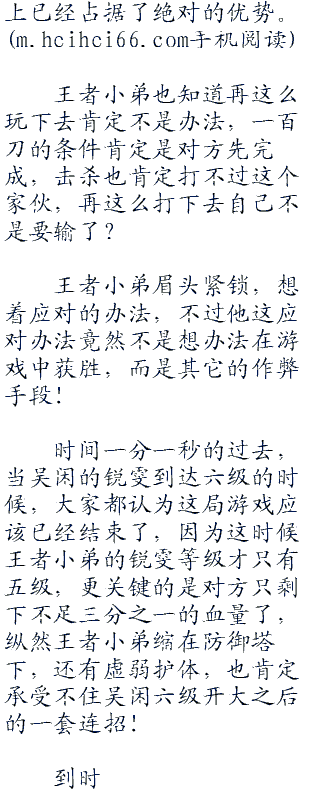 上已经占据了绝对的优势。
(m.hcihci66.com手机阅读)
王者小弟也知道再这么
玩下去肯定不是办法，一百
刀的条件肯定是对方先完
成，击杀也肯定打不过这个
家伙，再这么打下去自己不
是要输了？
王者小弟眉头紧锁，想
着应对的办法，不过他这应
对办法竟然不是想办法在游
戏中获胜，而是其它的作弊
手段！
时间一分一秒的过去，
当吴闲的锐雯到达六级的时
候，大家都认为这局游戏应
该已经结束了，因为这时候
王者小弟的锐雯等级才只有
五级，更关键的是对方只剩
下不足三分之一的血量了，
纵然王者小弟缩在防御塔
下，还有虚弱护体，也肯定
承受不住吴闲六级开大之后
的一套连招！
到时